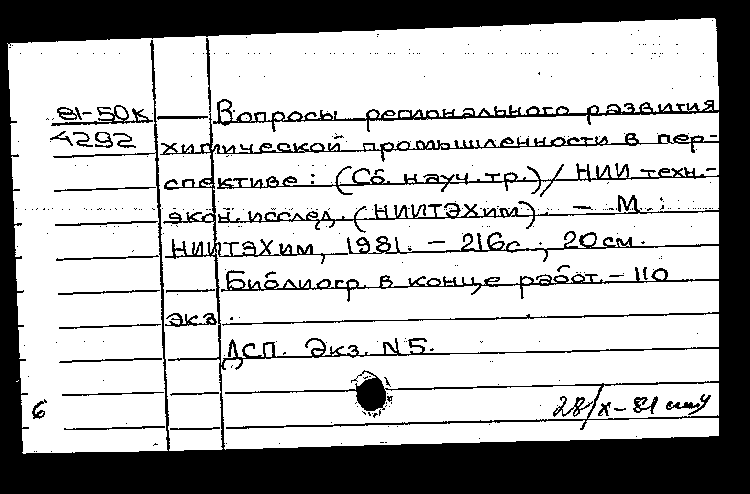 81-50к Вопросы регионального развития
4292 химической промышленности в пер-
спективе: (Сб. науч. тр.) / НИИ техн.-
экон. исслед. (НИИТЭХим). - М.:
НИИТЭХим, 1981. - 216с.; 20см.
Библиогр. в конце работ. - 110
экз.
ДСП. Экз. N5.
6 28/X-81